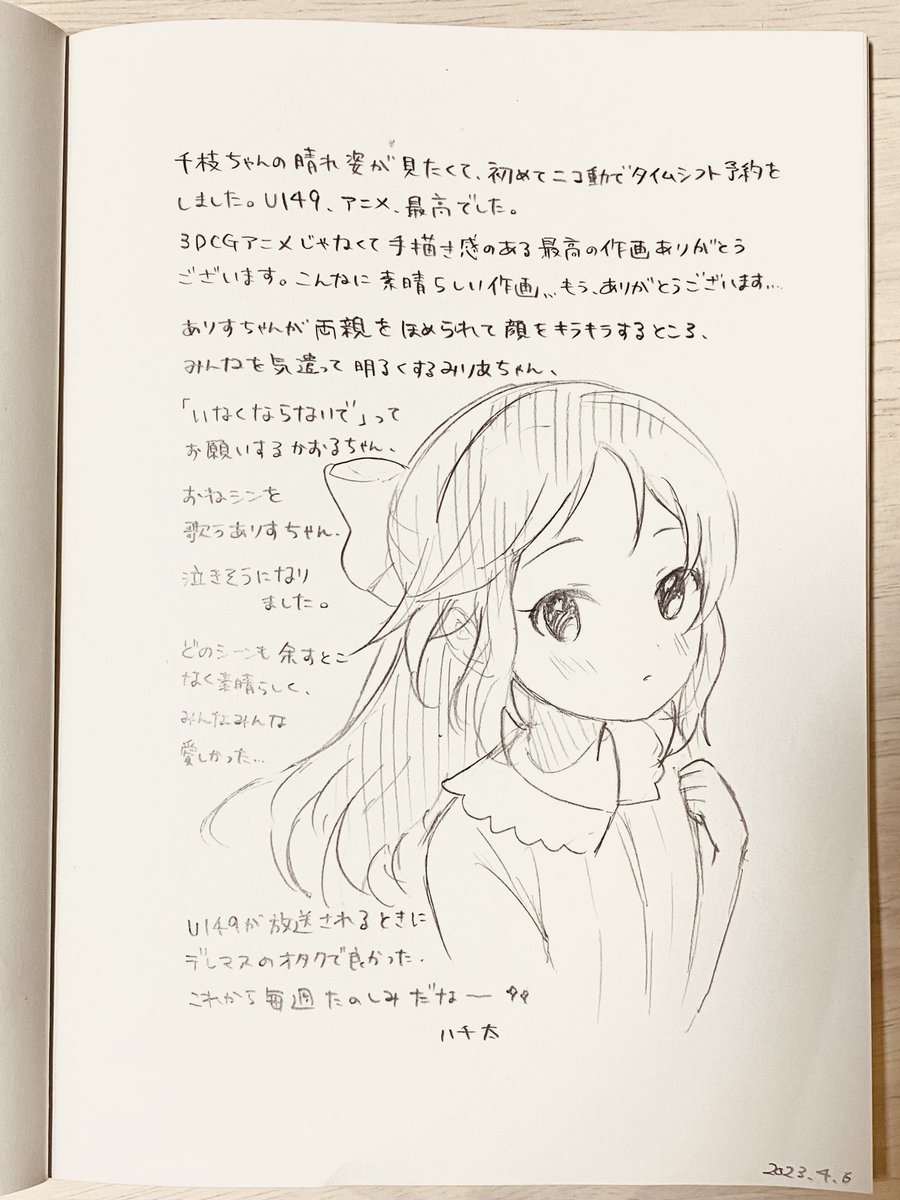 千枝ちゃんの晴れ姿が見たくて、初めてニコ動でタイムシフト予約を
しました。U149、アニメ、最高でした。
3DCGアニメじゃなくて手描き感のある最高の作画ありがとう
ございます。こんなに素晴らしい作画…もう、ありがとうございます…
ありすちゃんが両親をほめられて顔をキラキラするところ、
みんなを気遣って明るくするみりあちゃん、
「いなくならないで」って
お願いするかおるちゃん、
おねシンを
歌うありすちゃん、
泣きそうになり
ました。
どのシーンも余すとこ
なく素晴らしく、
みんなみんな
愛しかった…
U149が放送されるときに
デレマスのオタクで良かった.
これから毎週たのしみだなー
ハチ太
2023.4.6